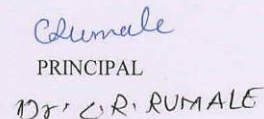 CRumale
PRINCIPAL
Dr. C.R. RUMALE